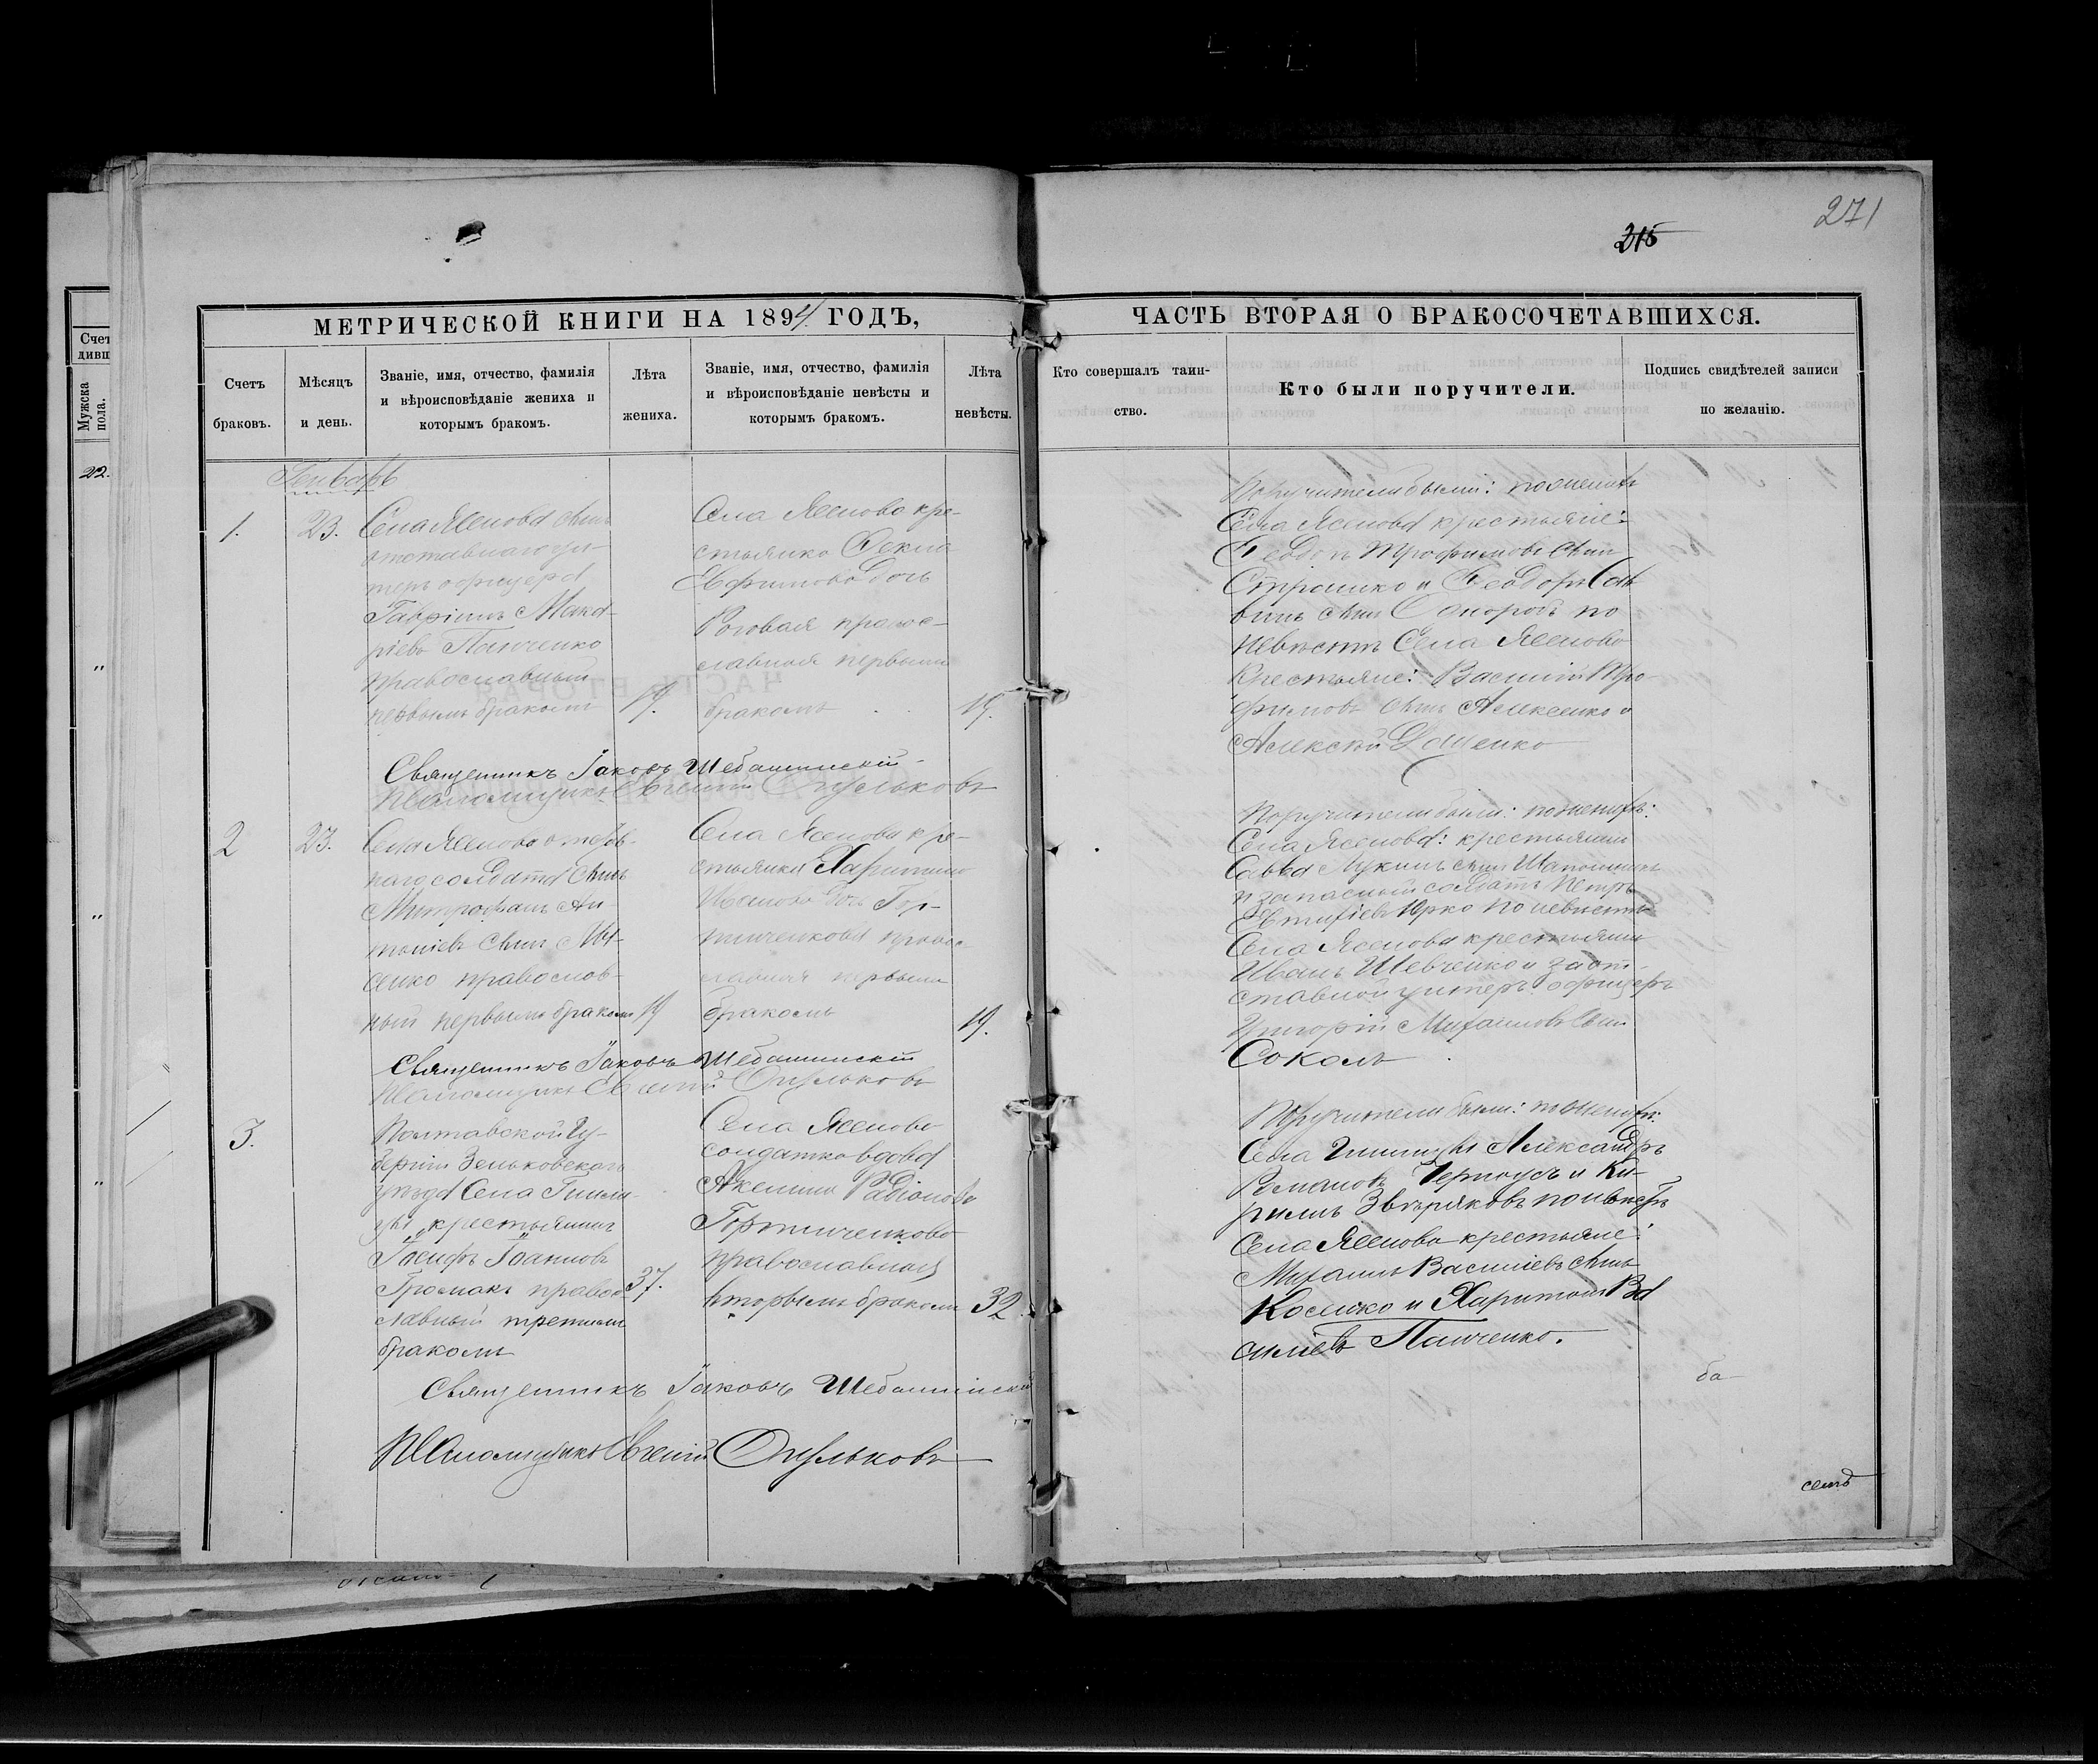 271
215
МЕТРИЧЕСКОЙ КНИГИ НА 1894 ГОДЪ,
Счетъ браковъ.
Мѣсяцъ и день.
Званіе, имя, отчество, фамилія
и вѣроисповѣданіе жениха и
которымъ бракомъ.
Лѣта жениха.
Званіе, имя, отчество, фамилія
и вѣроисповѣданіе невѣсты и
которымъ бракомъ.
Лѣта невѣсты.
ЧАСТЬ ВТОРАЯ О БРАКОСОЧЕТАВШИХСЯ.
Кто совершалъ таин-
ство.
Кто были поручители.
Подпись свидѣтелей записи
по желанію.
Счет
дивш
Мужска
пола.
22.
Генварь
1.
23.
Села Ясенова сынъ
отставного ун-
теръ офицера
Гавріилъ Мака-
ріевъ Панченко
православный
первымъ бракомъ
19.
Села Ясенова кре-
стьянка Фекла
Евфимова дочь
Роговая правос-
лавная первымъ
бракомъ
19.
Поручители были: по женихѣ
Села Ясенова крестьяне:
Феодоръ Трофимовъ сынъ
и Феодоръ Сав
винъ сынъ по
невѣстѣ Села Ясенова
Крестьяне: Василій Тро
фимовъ сынъ Алексенко и
Алексѣй
Священникъ Іаковъ Шебатинскій
Псаломщикъ Евгеній Огульковъ
2
23.
Села Ясенова
наго солдата сынъ
Митрофанъ Ан-
тоніевъ сынъ
сенко православ-
ный первымъ бракомъ
19
Села Ясенова кре-
стьянка Харитина
Иванова дочь Гор-
тинченкова правос-
лавная первымъ
бракомъ
19.
Поручители были: по женихѣ:
Села Ясенова: крестьянинъ
Савва Лукинъ сынъ Шаповалъ
и запасный солдатъ Петръ
Юрко по невѣстѣ
Села Ясенова крестьянинъ
Иванъ Шевченко и
ставной унтеръ офицеръ
Григорій Михаиловъ сынъ
Соколъ
Священникъ Іаковъ Шебатинскій
Псаломщикъ Евгеній Огульковъ
3.
Полтавской Гу-
берніи Зеньковскаго
уѣзда Села Гнили-
цы крестьянинъ
Іосифъ Іоанновъ
Громакъ правос
лавный третьимъ
бракомъ
37.
Села Ясенова
солдатка вдова
Акелина Радіонова
Гортинченкова
православная
вторымъ бракомъ
32
Поручители были: по женихѣ:
Села Гнилицы Александръ
Романовъ Черноусъ и Ки-
рилъ Звѣряковъ по невѣстѣ
Села Ясенова крестьяне:
Михаилъ Василіевъ сынъ
Косенко и Харитонъ Ва
силіевъ Панченко.
Священникъ Іаковъ Шебатинскій
Псаломщикъ Евгеній Огульковъ
ба-
семь